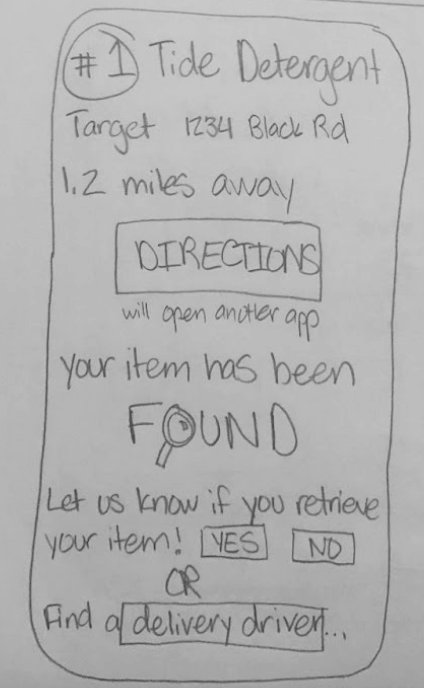 #1 Tide Detergent
Target 1234 Black Rd
1.2 miles away
DIRECTIONS
will open another app
your item has been
FOUND
Let us know if you retrieve
your item! YES NO
OR
Find a delivery driver...